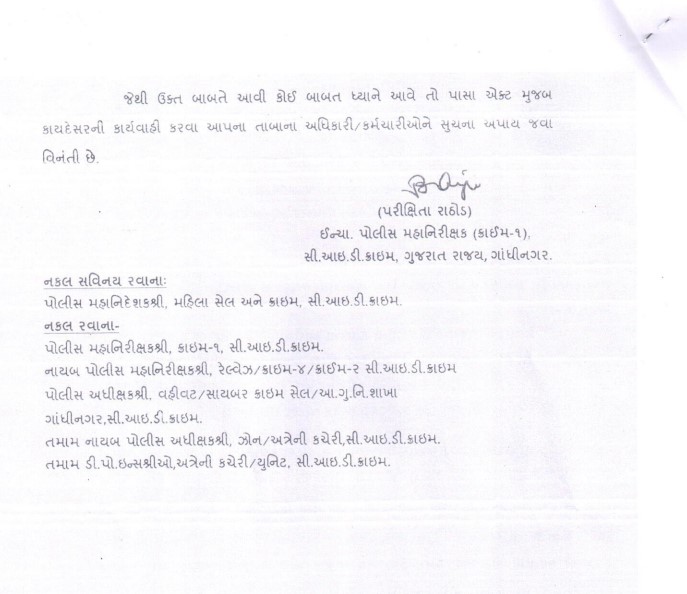 જેથી ઉક્ત બાબતે આવી કોઈ બાબત ધ્યાને આવે તો પાસા એક્ટ મુજબ
કાયદેસરની કાર્યવાહી કરવા આપના તાબાના અધિકારી/કર્મચારીઓને સુચના અપાય જવા
વિનંતી છે.
(પરીક્ષિતા રાઠોડ)
ઈન્ચા. પોલીસ મહાનિરીક્ષક (ક્રાઈમ-૧),
સી.આઇ.ડી.ક્રાઇમ, ગુજરાત રાજય, ગાંધીનગર.
નકલ સવિનય રવાના:
પોલીસ મહાનિદેશકશ્રી, મહિલા સેલ અને ક્રાઇમ, સી.આઇ.ડી.ક્રાઇમ.
નકલ રવાના-
પોલીસ મહાનિરીક્ષકશ્રી, ક્રાઇમ-૧, સી.આઇ.ડી.ક્રાઇમ.
નાયબ પોલીસ મહાનિરીક્ષકશ્રી, રેલ્વેઝ/ક્રાઇમ-૪/ક્રાઈમ-૨ સી.આઇ.ડી.ક્રાઇમ
પોલીસ અધીક્ષકશ્રી. વહીવટ/સાયબર ક્રાઇમ સેલ/આ.ગુ.નિ.શાખા
ગાંધીનગર,સી.આઇ.ડી.ક્રાઇમ.
તમામ નાયબ પોલીસ અધીક્ષકશ્રી, ઝોન/અત્રેની કચેરી,સી.આઇ.ડી.ક્રાઇમ.
તમામ ડી.પો.ઇન્સશ્રીઓ,અત્રેની કચેરી/યુનિટ, સી.આઇ.ડી.ક્રાઇમ.